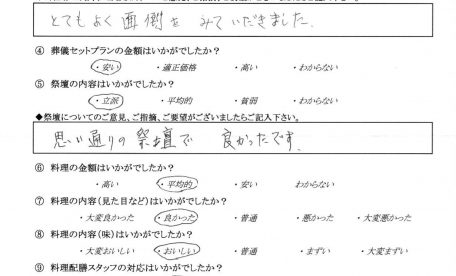 とてもよく面倒を みていただきました.
④ 葬儀セットプランの金額はいかがでしたか?
・安い ・適正価格 ・高い ・わからない
⑤ 祭壇の内容はいかがでしたか?
・立派 ・平均的 ・貧弱 ・わからない
◆祭壇についてのご意見、ご指摘、ご要望がございましたらご記入下さい。
思い通りの祭壇で 良かったです.
⑥ 料理の金額はいかがでしたか?
・高い ・平均的 ・安い わからない
⑦ 料理の内容(見た目など)はいかがでしたか?
・大変良かった ・良かった ・普通 ・悪かった ・大変悪かった
⑧ 料理の内容(味)はいかがでしたか?
・大変おいしい ・おいしい ・普通 ・まずい ・大変まずい
⑨ 料理配膳スタッフの対応はいかがでしたか?